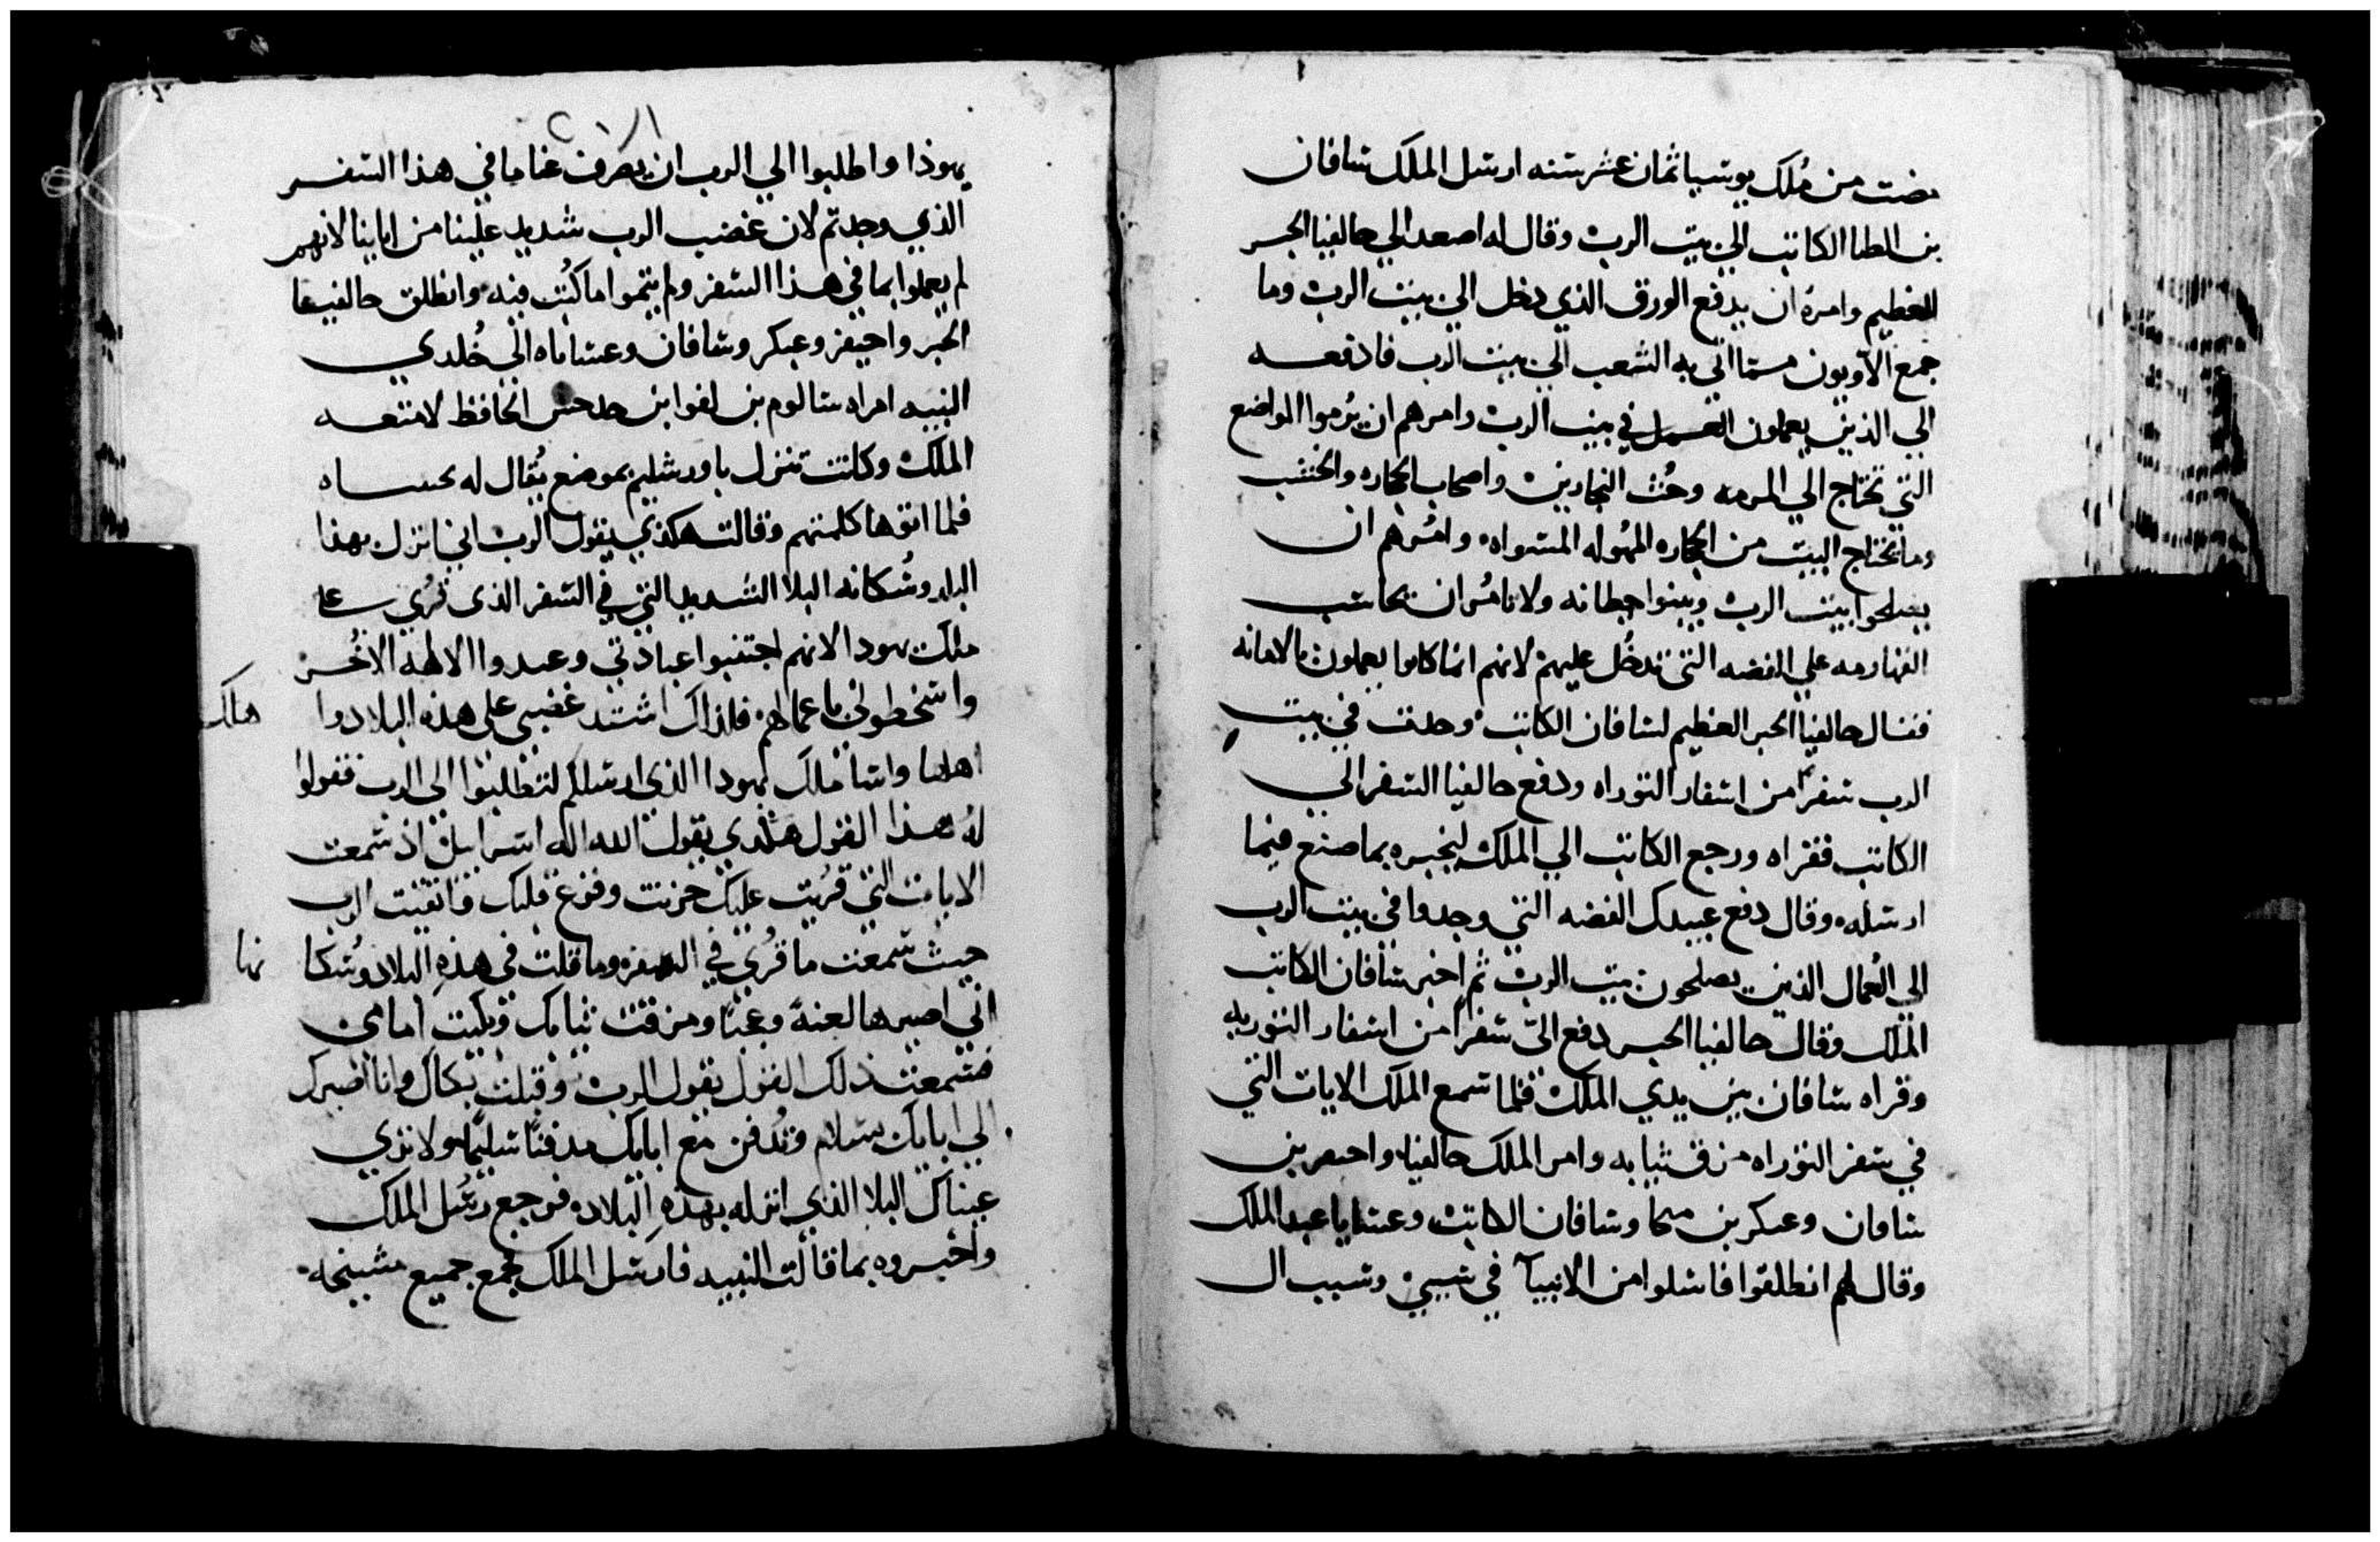 مضت من مُلك يوشيا ثمان عشر سنه ارسل الملك شافان
بن الطا الكاتب الي بيت الرب وقال له اصعد الي حالفيا الحبر
العظيم وامره ان يدفع الورق الذي دخل الي بيت الرب وما
جمع الاويون مما اتي به الشعب الي بيت الرب فادفعه
الي الذين يعملون العمل في بيت الرب وامرهم ان يُرموا المواضع
التي تحتاج الي المرمه وحُث النجارين واصحاب الحجاره والخشب
وما يحتاج البيت من الحجاره المهُوله المستواه وامُرهم ان
يصلحوا بيت الرب ويبنوا حيطانه ولا تامُر ان يحاسب
القهارمه علي الفضه التي تدخُل عليهم لانهم انما كانوا يعملون بالامانه
فقال حالفيا الحبر العظيم لشافان الكاتب وجدت في بيت
الرب سفرًا من اسفار التوراه ودفع حالفيا السفر الي
الكاتب فقراه ورجع الكاتب الي الملك ليخبره بما صنع فيما
ارسله وقال دفع عبيدك الفضه التي وجدوا في بيت الرب
الي العُمال الذين يصلحون بيت الرب ثم اخبر شافان الكاتب
الملك وقال حالفيا الحبر دفع اليّ سفرًا من اسفار التوريه
وقراه شافان بين يدي الملك فلما سمع الملك الايات التي
في سفر التوراه مزق ثيابه وامر الملك حالفيا واحيقر بن
شافان وعبكر بن ميخا وشافان الكاتب وعشايا عبد الملك
وقال لهم انطلقوا فاسلوا من الانبيآ في سببي وسبب ال
يهوذا واطلبوا الي الرب ان يصرف عنا ما في هذا السفر
الذي وجدتم لان غضب الرب شديد علينا من ابائنا لانهم
لم يعملوا بما في هذا السفر ولم يتموا ما كُتب فيه وانطلق حالفيا
الحبر واحيقر وعبكر وشافان وعشاياه الي خُلدي
النبيه امراه شالوم بن لفوا بن حدحس الحافظ لامتعه
الملك وكانت تنزل باورشليم بموضع يُقال له
فلما اتوها كلمتهم وقالت هكذي يقول الرب اني انزل بهذا
البلد وسُكانه البلا الشديد التي في السفر الذي قُري علي
ملك يهودا لانهم اجتنبوا عبادتي وعبدوا الالهه الاخُر
واسخطوني باعمالهم فلذاك اشتد غضبي علي هذه البلاد وا
هلك
اهلها واشا ملك يهودا الذي ارسلكم لتطلبوا الي الرب فقولوا
لهُ هذا القول هكذي يقول الله اله اسراييل اذ سمعت
الايات التي قُريت عليك حزنت وفزع قلبك فاتقيت الرب
حيث سمعت ما قُري في السفر وما قلت في هذهِ البلاد وسُكا
نها
اني اصيرها لعنهً وعجبًا ومزقت ثيابك وبكيت امامي
فسمعت ذلك القول يقول الرب وقبلت بكاك وانا اضيرك
الي ابايك بسلام وتُدفن مع ابايك مدفنًا سليمًا ولا تري
عيناك البلا الذي انزله بهذهِ البلاد فرجع رسُل الملك
واخبروه بما قالت النبيه فارسل الملك فجمع جميع مشيخه